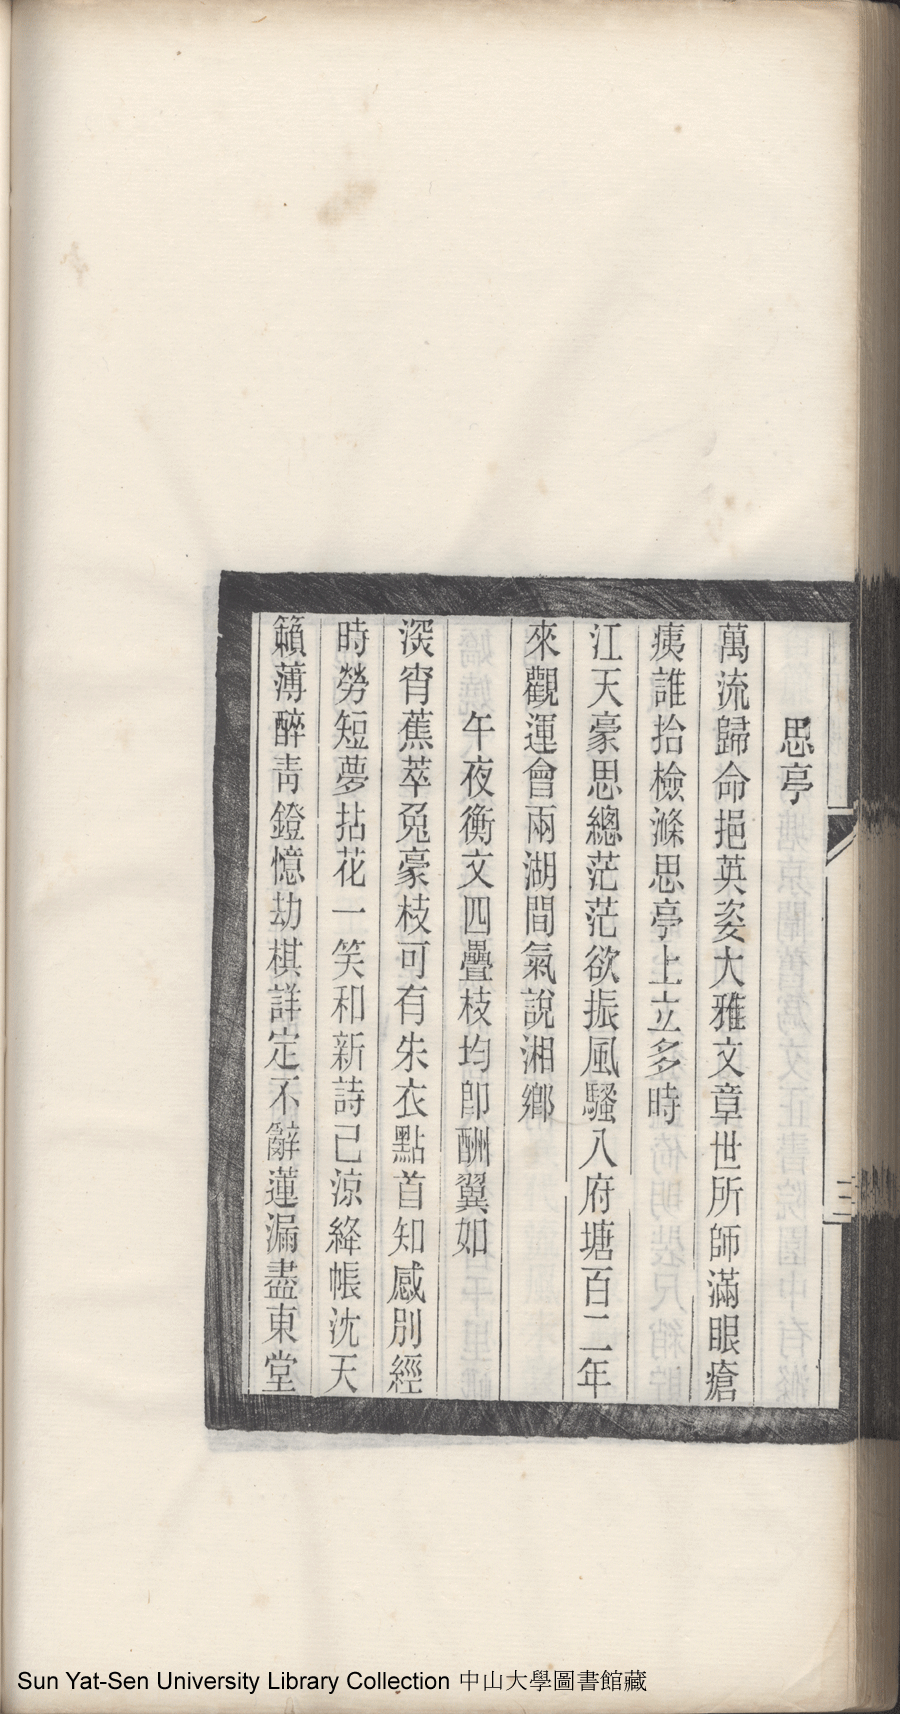 思亭
萬流歸命挹英姿大雅文章世所師滿眼瘡
痍誰拾檢滌思亭上立多時
江天豪思總茫茫欲振風騷八府塘百二年
來觀運會兩湖間氣說湘鄉
午夜衡文四疊枝均卽酬翼如
深宵蕉萃兔豪枝可有朱衣點首知感別經
時勞短夢拈花一笑和新詩已涼絳帳沈天
籟薄醉靑鐙憶劫棋詳定不辭蓮漏盡東堂
三
Sun Yat-Sen University Library Collection 中山大學圖書館藏